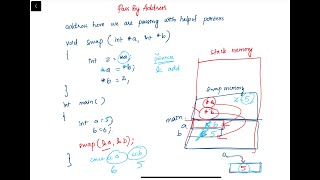 Pass By Address
address here we are passing with help of pointers
void swap (int *a, int *b)
{ int z = *a;
*a = *b;
*b = z;
}
int main()
{
int a = 5;
b = 6;
swap(&a, &b);
}
6 5
& add
Stack memory
swap memory
*a
*b
z 5
main
a
b
a
5